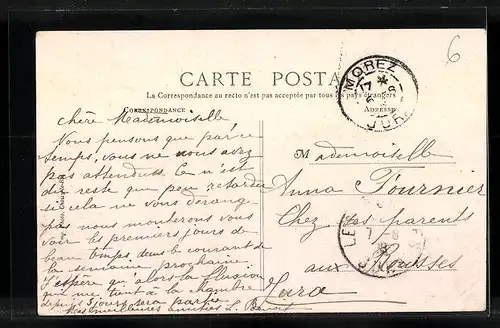 CARTE POSTALE
La Correspondance au recto n'est pas acceptée par tous les pays étrangers
CORRESPONDANCE
ADRESSE
MOREZ
JURA
6
Chère Mademoiselle
Nous pensons que par ce
temps, vous ne nous avez
pas attendus. Ce n'est
du reste que peu retarder
si cela ne vous dérange
pas nous monterons vous
voir les premiers jours de
beau temps, dans le courant de
la semaine prochaine.
J'espère qu'alors la fluxion
qui me tient à la chambre
depuis 3 jours sera partie
Nos meilleures amitiés L. Benoit
Mademoiselle
Anna Fournier
Chez ses parents
aux Rousses
Jura